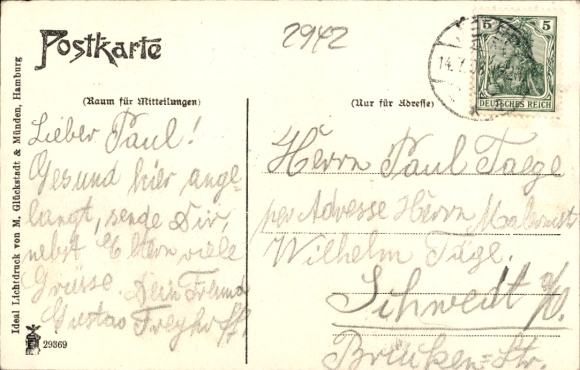 Postkarte
2942
5 5
DEUTSCHES REICH
14.7.
(Raum für Mitteilungen)
(Nur für Adresse)
Lieber Paul!
Gesund hier ange-
langt, sende Dir,
nebst Eltern viele
Grüsse. Dein Freund
Gustav
Herrn Paul Taege
per Adresse Herrn
Wilhelm Täge.
Schwedt a/O.
Brücken-Str.
Ideal Lichtdruck von M. Glückstadt & Münden, Hamburg
29869